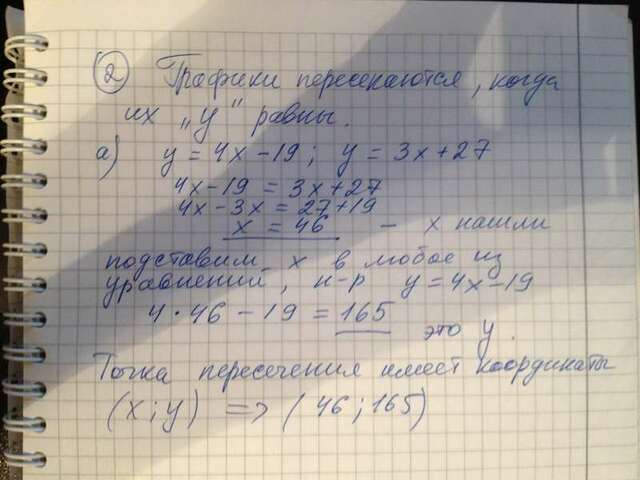 2 Графики пересекаются, когда
их „у" равны.
а) y = 4x - 19; y = 3x + 27
4x - 19 = 3x + 27
4x - 3x = 27 + 19
x = 46 - х нашли
подставим х в любое из
уравнений, н-р y = 4x - 19
4 · 46 - 19 = 165 это y.
Точка пересечения имеет координаты
(x; y) => (46; 165)